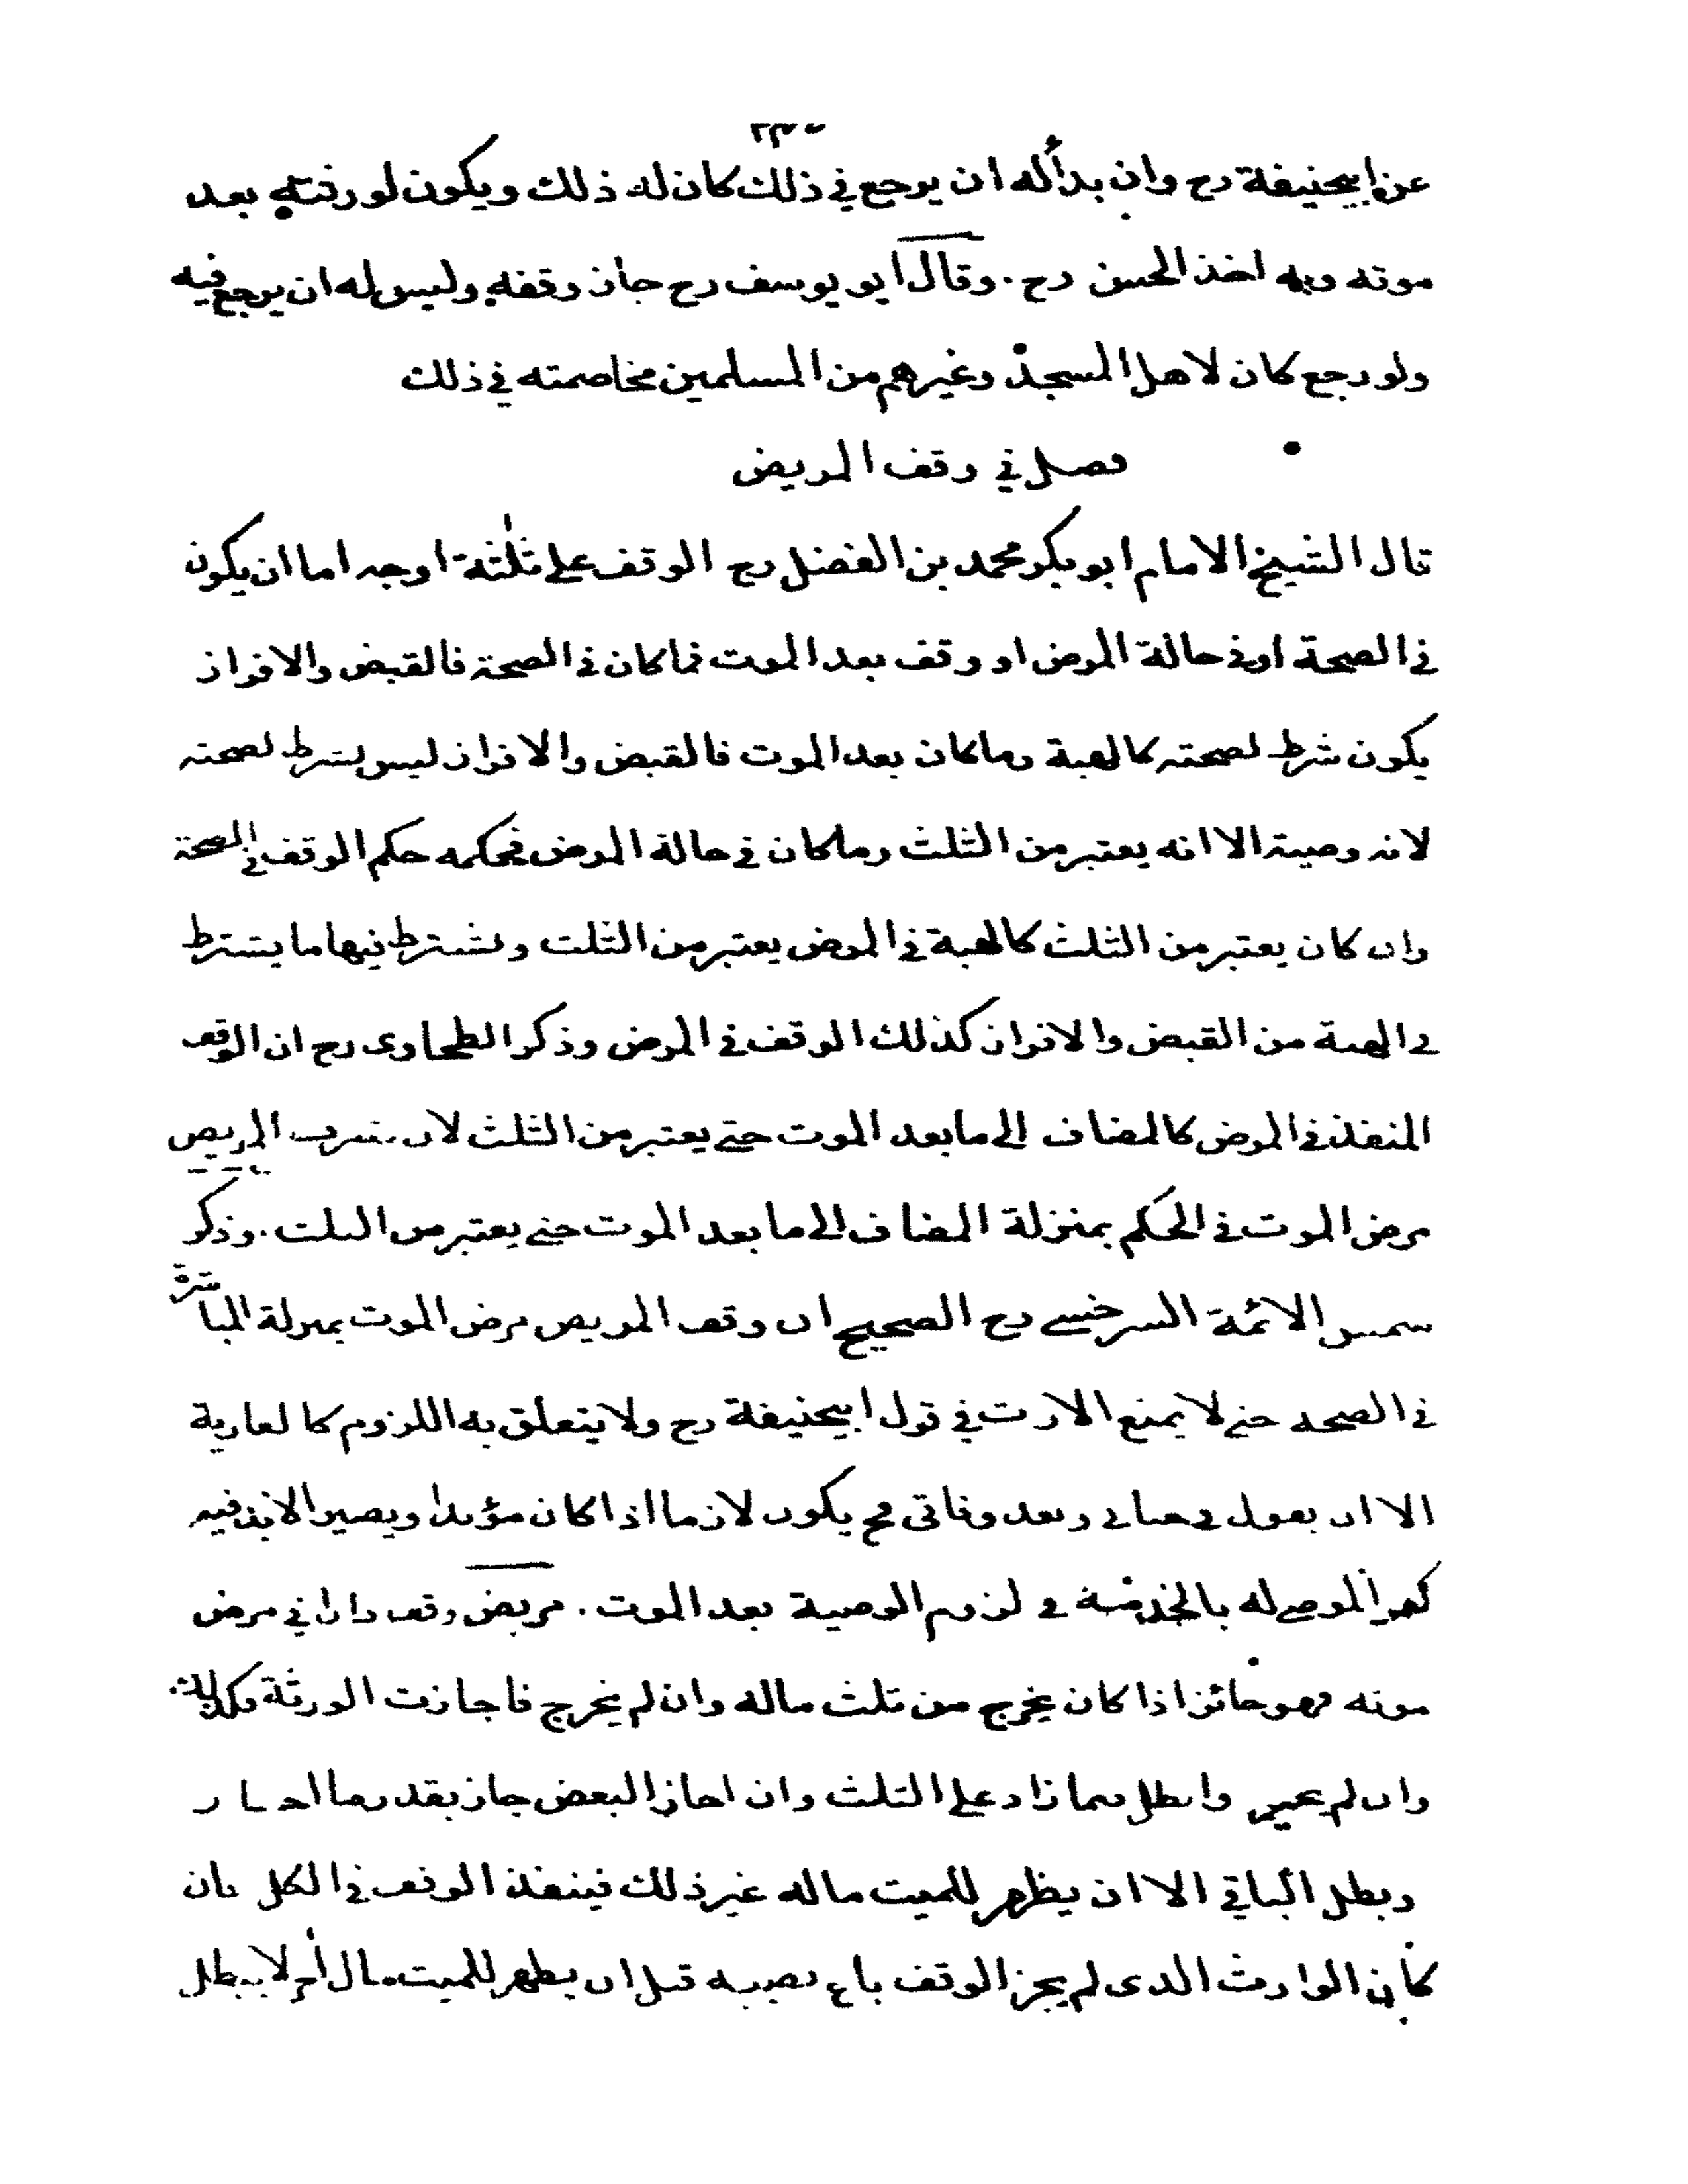 عن ابيحنيفة رح وان بدأ له ان يرجع في ذلك كان له ذلك ويكون لورثته بعد
موته وبه اخذ الحسن رح. وقال ابو يوسف رح جاز وقفه وليس له ان يرجع فيه
ولو رجع كان لاهل المسجد وغيرهم من المسلمين مخاصمته في ذلك
فصل في وقف المريض
قال الشيخ الامام ابو بكر محمد بن الفضل رح الوقف على ثلثة اوجه اما ان يكون
في الصحة او في حالة المرض او وقف بعد الموت فما كان في الصحة فالقبض والافراز
يكون شرط لصحته كالهبة وما كان بعد الموت فالقبض والافراز ليس بشرط لصحته
لانه وصية الا انه يعتبر من الثلث وما كان في حالة المرض فحكمه حكم الوقف في الصحة
وان كان يعتبر من الثلث كالهبة في المرض يعتبر من الثلث ويشترط فيها ما يشترط
في الهبة من القبض والافراز كذلك الوقف في المرض وذكر الطحاوى رح ان الوقف
المنفذ في المرض كالمضاف الى ما بعد الموت حتى يعتبر من الثلث لان تصرف المريض
مرض الموت في الحكم بمنزلة المضاف الى ما بعد الموت حتى يعتبر من الثلث. وذكر
شمس الائمة السرخسى رح الصحيح ان وقف المريض مرض الموت بمنزلة المباشرة
في الصحة حتى لا يمنع الارث في قول ابيحنيفة رح ولا يتعلق به اللزوم كالعارية
الا ان يقول في حياتى وبعد وفاتى فح يكون لازما اذا كان مؤبدا ويصير الابد فيه
كعمر الموصى له بالخدمة في لزوم الوصية بعد الموت. مريض وقف دارا في مرض
موته فهو جائز اذا كان يخرج من ثلث ماله وان لم يخرج فاجازت الورثة فكذلك
وان لم يجيز وابطل فيما زاد على الثلث وان اجاز البعض جاز بقدر ما اجاز
وبطل الباقي الا ان يظهر للميت مال غير ذلك فينفذ الوقف في الكل فان
كان الوارث الذى لم يجز الوقف باع نصيبه قبل ان يظهر للميت مال أخر لا يبطل